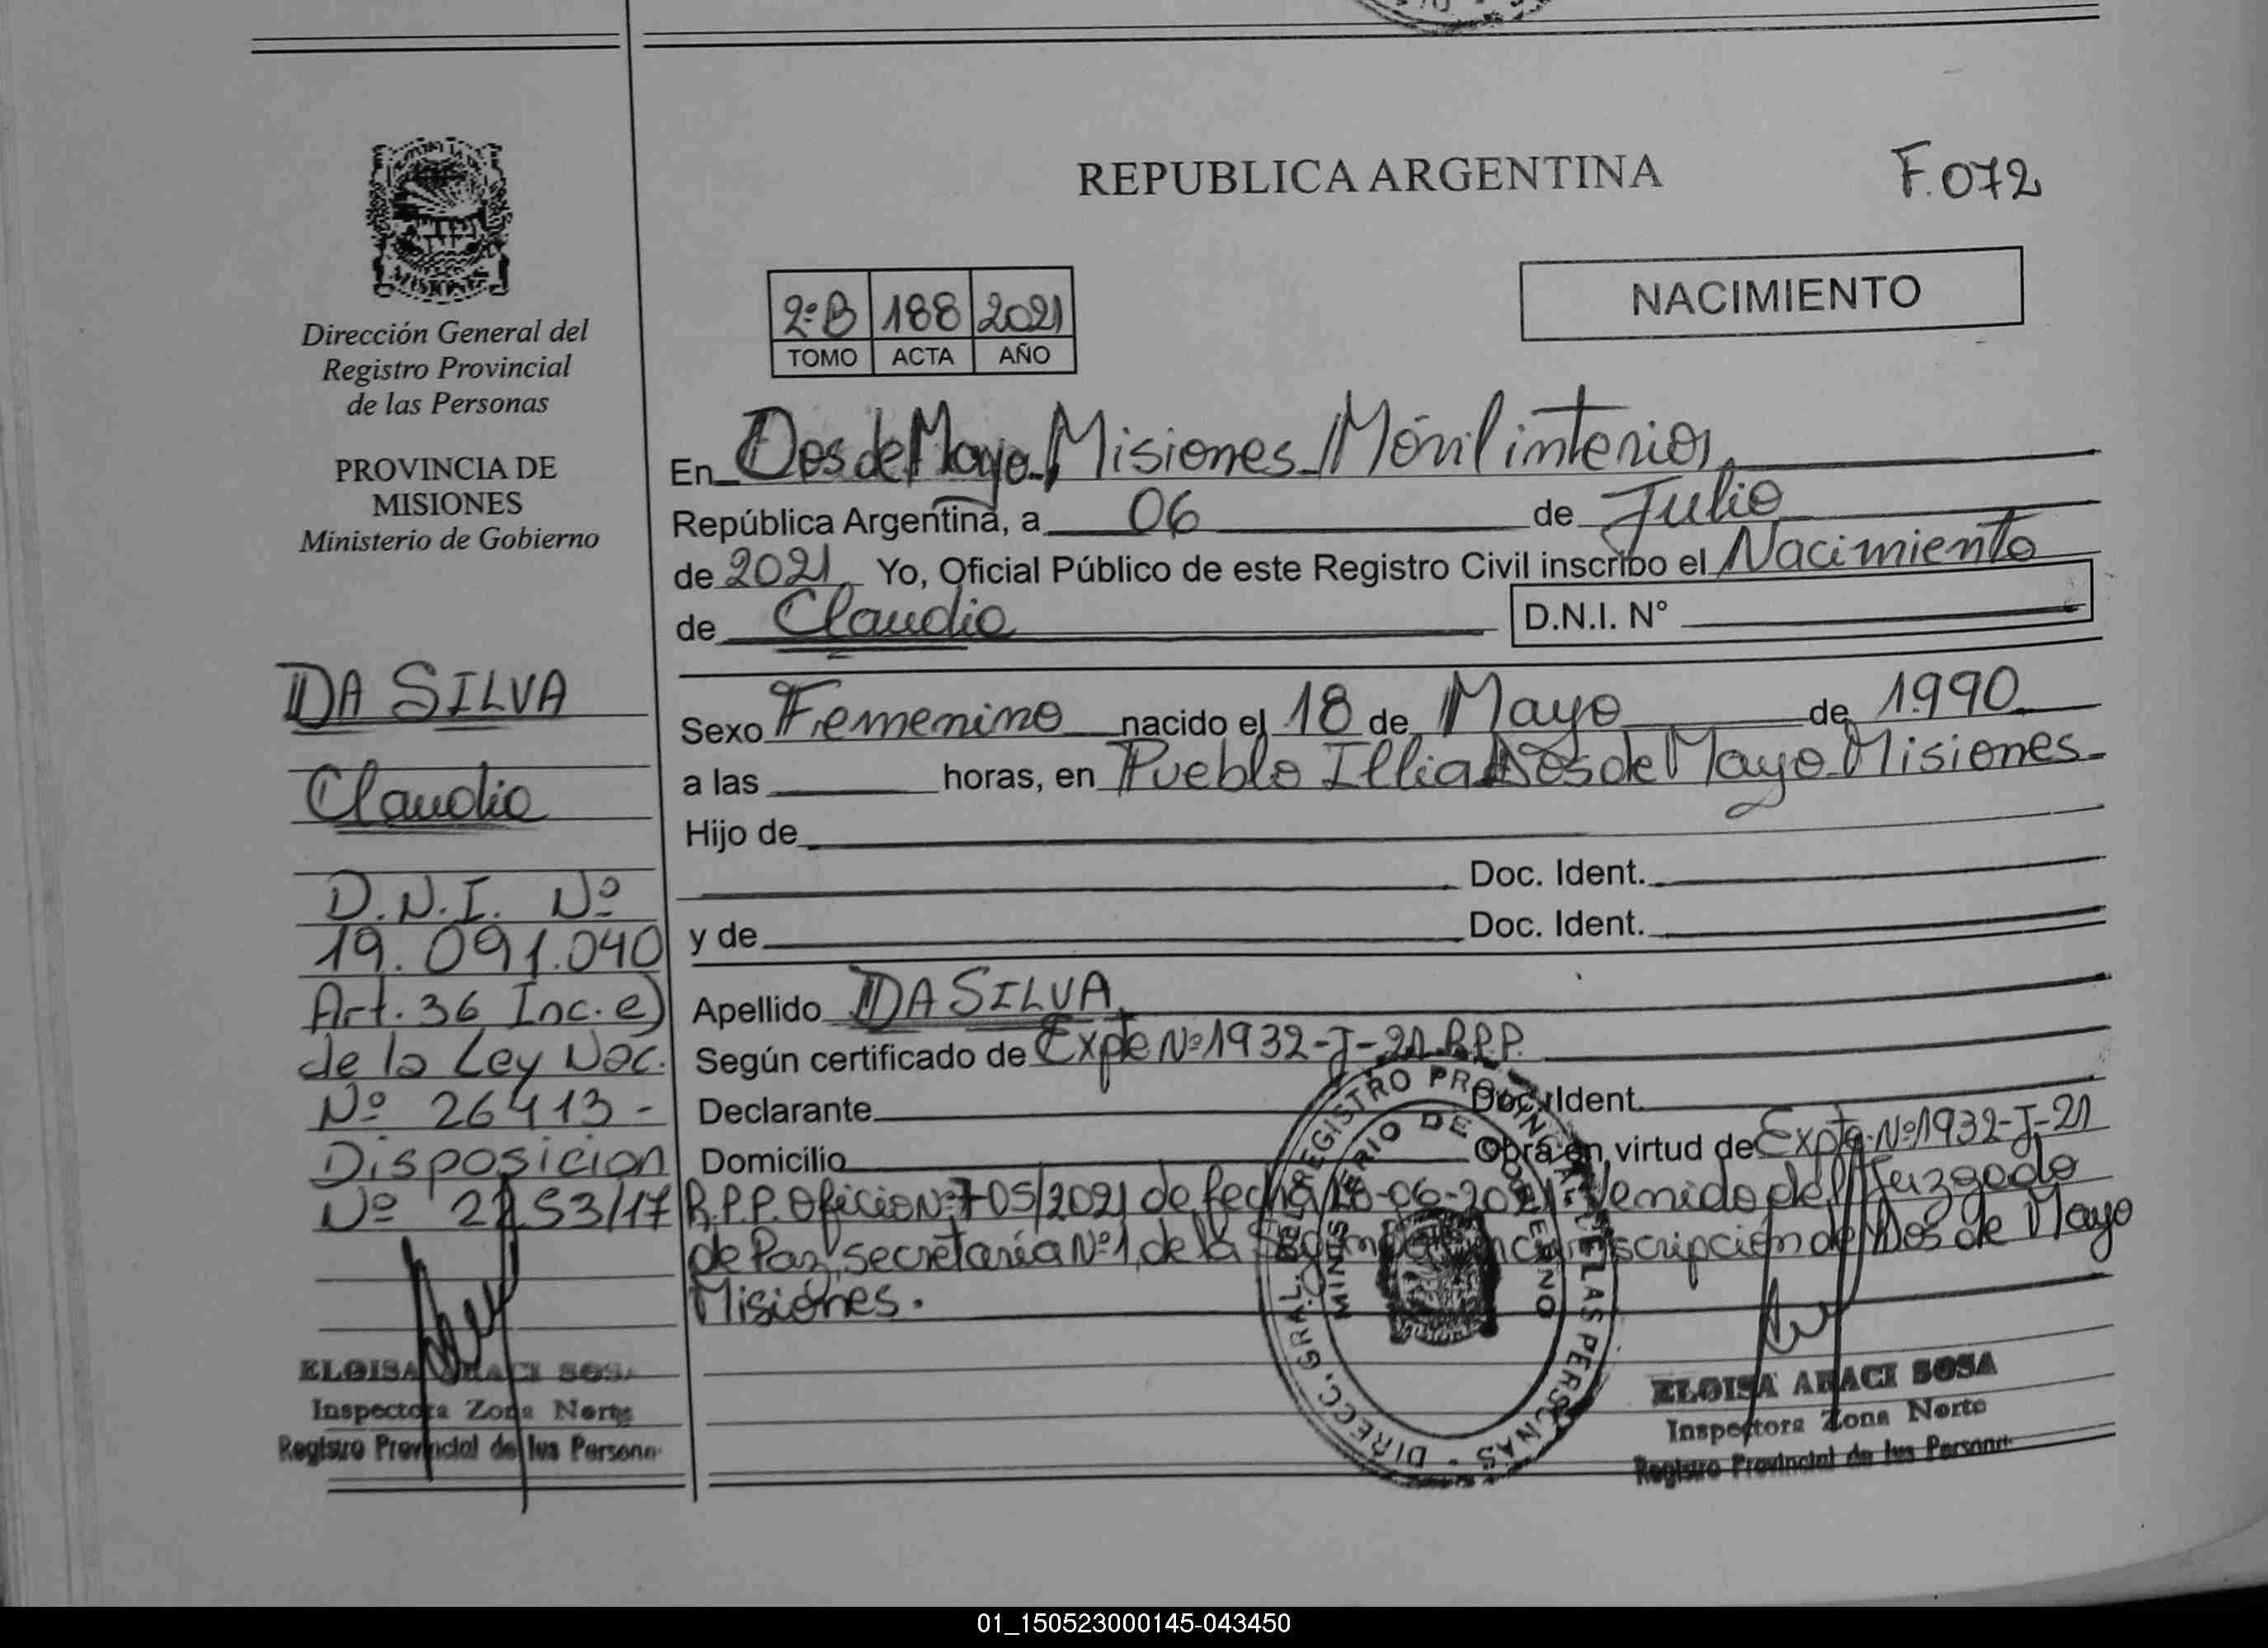 REPUBLICA ARGENTINA
F.072
MISIONES
Dirección General del
Registro Provincial
de las Personas
PROVINCIA DE
MISIONES
Ministerio de Gobierno
2ºB 188 2021
TOMO ACTA AÑO
NACIMIENTO
En Dos de Mayo Misiones Móvil interior
República Argentina, a 06 de Julio
de 2021 Yo, Oficial Público de este Registro Civil inscribo el Nacimiento
de Claudia D.N.I. Nº
Sexo Femenino nacido el 18 de Mayo de 1990
a las horas, en Pueblo Illia Dos de Mayo Misiones
Hijo de
Doc. Ident.
y de Doc. Ident.
Apellido DA SILVA
Según certificado de Expte Nº 1932-J-21 R.P.P.
Declarante Doc. Ident.
Domicilio Obra en virtud de Expte Nº 1932-J-21
R.P.P. Oficio Nº 705/2021 de fecha -06-2021 venido del Juzgado
de Paz, secretaría Nº 1, de la de Dos de Mayo
Misiones.
DA SILVA
Claudia
D.N.I. Nº
19.091.040
Art. 36 Inc. e)
de la Ley Nac.
Nº 26413-
Disposicion
Nº
ELOISA ARACI SOSA
Inspectora Zona Norte
Registro Provincial de las Persona
DIRECC. GRAL. DEL REGISTRO PROVINCIAL DE LAS PERSONAS -
MINISTERIO DE GOBIERNO
ELOISA ARACI SOSA
Inspectora Zona Norte
Registro Provincial de las Person
01_150523000145-043450